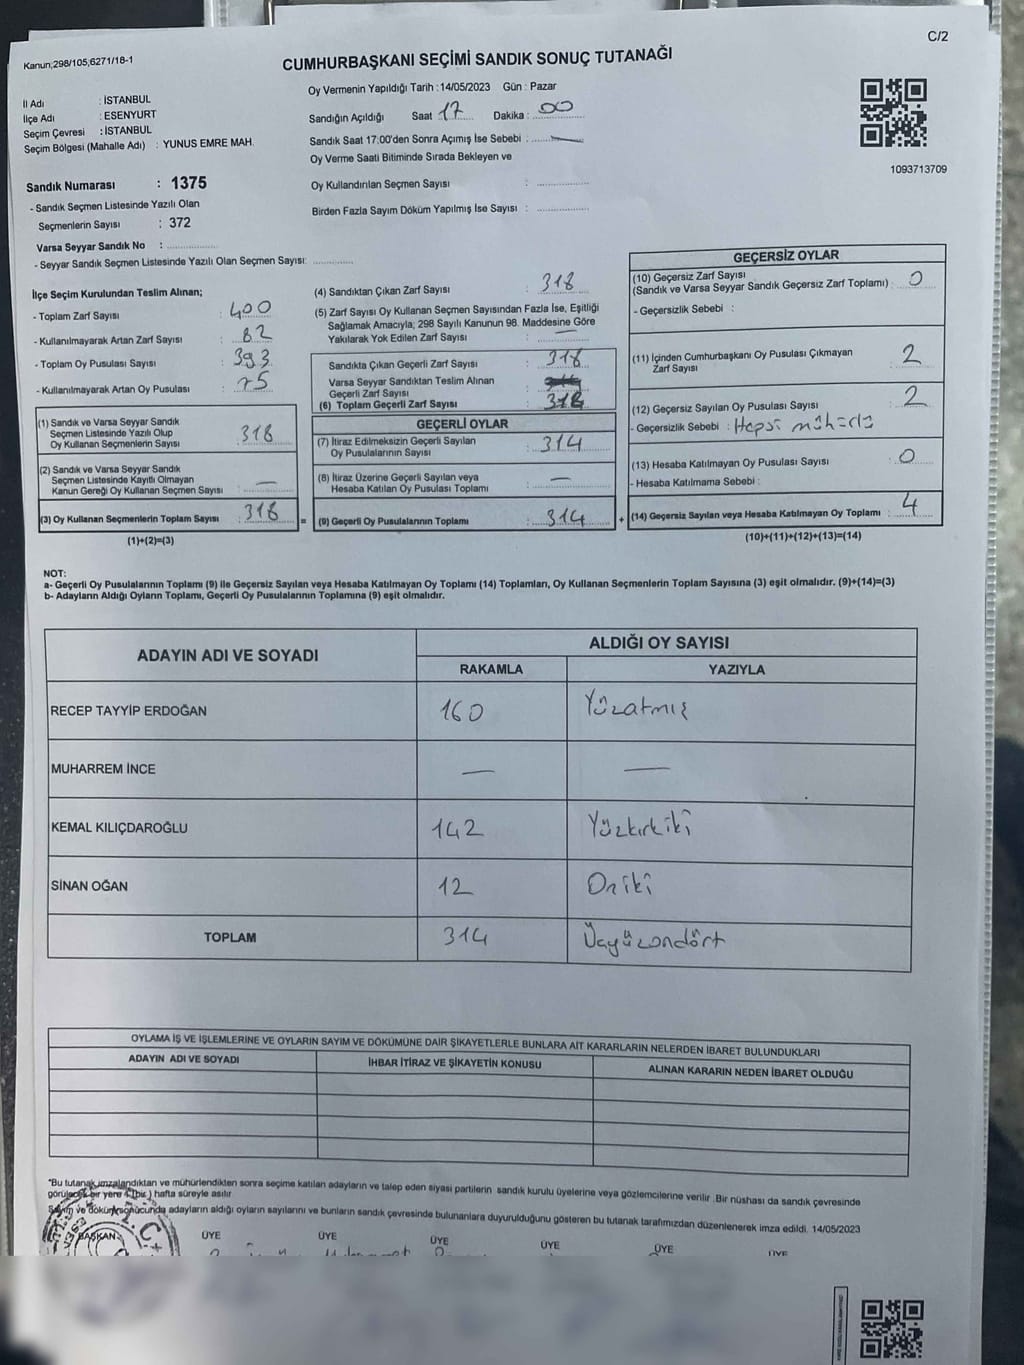 C/2
Kanun;298/105;6271/18-1
CUMHURBAŞKANI SEÇİMİ SANDIK SONUÇ TUTANAĞI
İl Adı : İSTANBUL
İlçe Adı : ESENYURT
Seçim Çevresi : İSTANBUL
Seçim Bölgesi (Mahalle Adı) : YUNUS EMRE MAH.
Sandık Numarası : 1375
- Sandık Seçmen Listesinde Yazılı Olan
Seçmenlerin Sayısı : 372
Varsa Seyyar Sandık No :
- Seyyar Sandık Seçmen Listesinde Yazılı Olan Seçmen Sayısı:
Oy Vermenin Yapıldığı Tarih :14/05/2023 Gün : Pazar
Sandığın Açıldığı Saat 17 Dakika : 00
Sandık Saat 17:00'den Sonra Açımış İse Sebebi : —
Oy Verme Saati Bitiminde Sırada Bekleyen ve
Oy Kullandırılan Seçmen Sayısı :
Birden Fazla Sayım Döküm Yapılmış İse Sayısı :
1093713709
İlçe Seçim Kurulundan Teslim Alınan;
- Toplam Zarf Sayısı : 400
- Kullanılmayarak Artan Zarf Sayısı : 82
- Toplam Oy Pusulası Sayısı : 393
- Kullanılmayarak Artan Oy Pusulası : 75
(1) Sandık ve Varsa Seyyar Sandık
Seçmen Listesinde Yazılı Olup
Oy Kullanan Seçmenlerin Sayısı : 318
(2) Sandık ve Varsa Seyyar Sandık
Seçmen Listesinde Kayıtlı Olmayan
Kanun Gereği Oy Kullanan Seçmen Sayısı : —
(3) Oy Kullanan Seçmenlerin Toplam Sayısı : 318
=
(1)+(2)=(3)
(4) Sandıktan Çıkan Zarf Sayısı : 318
(5) Zarf Sayısı Oy Kullanan Seçmen Sayısından Fazla İse, Eşitliği
Sağlamak Amacıyla; 298 Sayılı Kanunun 98. Maddesine Göre
Yakılarak Yok Edilen Zarf Sayısı : —
Sandıkta Çıkan Geçerli Zarf Sayısı : 318
Varsa Seyyar Sandıktan Teslim Alınan
Geçerli Zarf Sayısı :
(6) Toplam Geçerli Zarf Sayısı : 318
GEÇERLİ OYLAR
(7) İtiraz Edilmeksizin Geçerli Sayılan
Oy Pusulalarının Sayısı : 314
(8) İtiraz Üzerine Geçerli Sayılan veya
Hesaba Katılan Oy Pusulası Toplamı : —
(9) Geçerli Oy Pusulalarının Toplamı : 314
+
GEÇERSİZ OYLAR
(10) Geçersiz Zarf Sayısı
(Sandık ve Varsa Seyyar Sandık Geçersiz Zarf Toplamı) : 0
- Geçersizlik Sebebi :
(11) İçinden Cumhurbaşkanı Oy Pusulası Çıkmayan
Zarf Sayısı : 2
(12) Geçersiz Sayılan Oy Pusulası Sayısı : 2
- Geçersizlik Sebebi : Hepsi
(13) Hesaba Katılmayan Oy Pusulası Sayısı : 0
- Hesaba Katılmama Sebebi :
(14) Geçersiz Sayılan veya Hesaba Katılmayan Oy Toplamı : 4
(10)+(11)+(12)+(13)=(14)
NOT:
a- Geçerli Oy Pusulalarının Toplamı (9) ile Geçersiz Sayılan veya Hesaba Katılmayan Oy Toplamı (14) Toplamları, Oy Kullanan Seçmenlerin Toplam Sayısına (3) eşit olmalıdır. (9)+(14)=(3)
b- Adayların Aldığı Oyların Toplamı, Geçerli Oy Pusulalarının Toplamına (9) eşit olmalıdır.
ADAYIN ADI VE SOYADI
ALDIĞI OY SAYISI
RAKAMLA YAZIYLA
RECEP TAYYİP ERDOĞAN 160 Yüzatmış
MUHARREM İNCE — —
KEMAL KILIÇDAROĞLU 142 Yüzkırkiki
SİNAN OĞAN 12 Oniki
TOPLAM 314 Üçyüzondört
OYLAMA İŞ VE İŞLEMLERİNE VE OYLARIN SAYIM VE DÖKÜMÜNE DAİR ŞİKAYETLERLE BUNLARA AİT KARARLARIN NELERDEN İBARET BULUNDUKLARI
ADAYIN ADI VE SOYADI İHBAR İTİRAZ VE ŞİKAYETİN KONUSU ALINAN KARARIN NEDEN İBARET OLDUĞU
"Bu tutanak imzalandıktan ve mühürlendikten sonra seçime katılan adayların ve talep eden siyasi partilerin sandık kurulu üyelerine veya gözlemcilerine verilir. Bir nüshası da sandık çevresinde
görülecek bir yere 1 (bir) hafta süreyle asılır.
Sayım ve döküm sonucunda adayların aldığı oyların sayılarını ve bunların sandık çevresinde bulunanlara duyurulduğunu gösteren bu tutanak tarafımızdan düzenlenerek imza edildi. 14/05/2023
BAŞKAN ÜYE ÜYE ÜYE ÜYE ÜYE ÜYE
T.C.